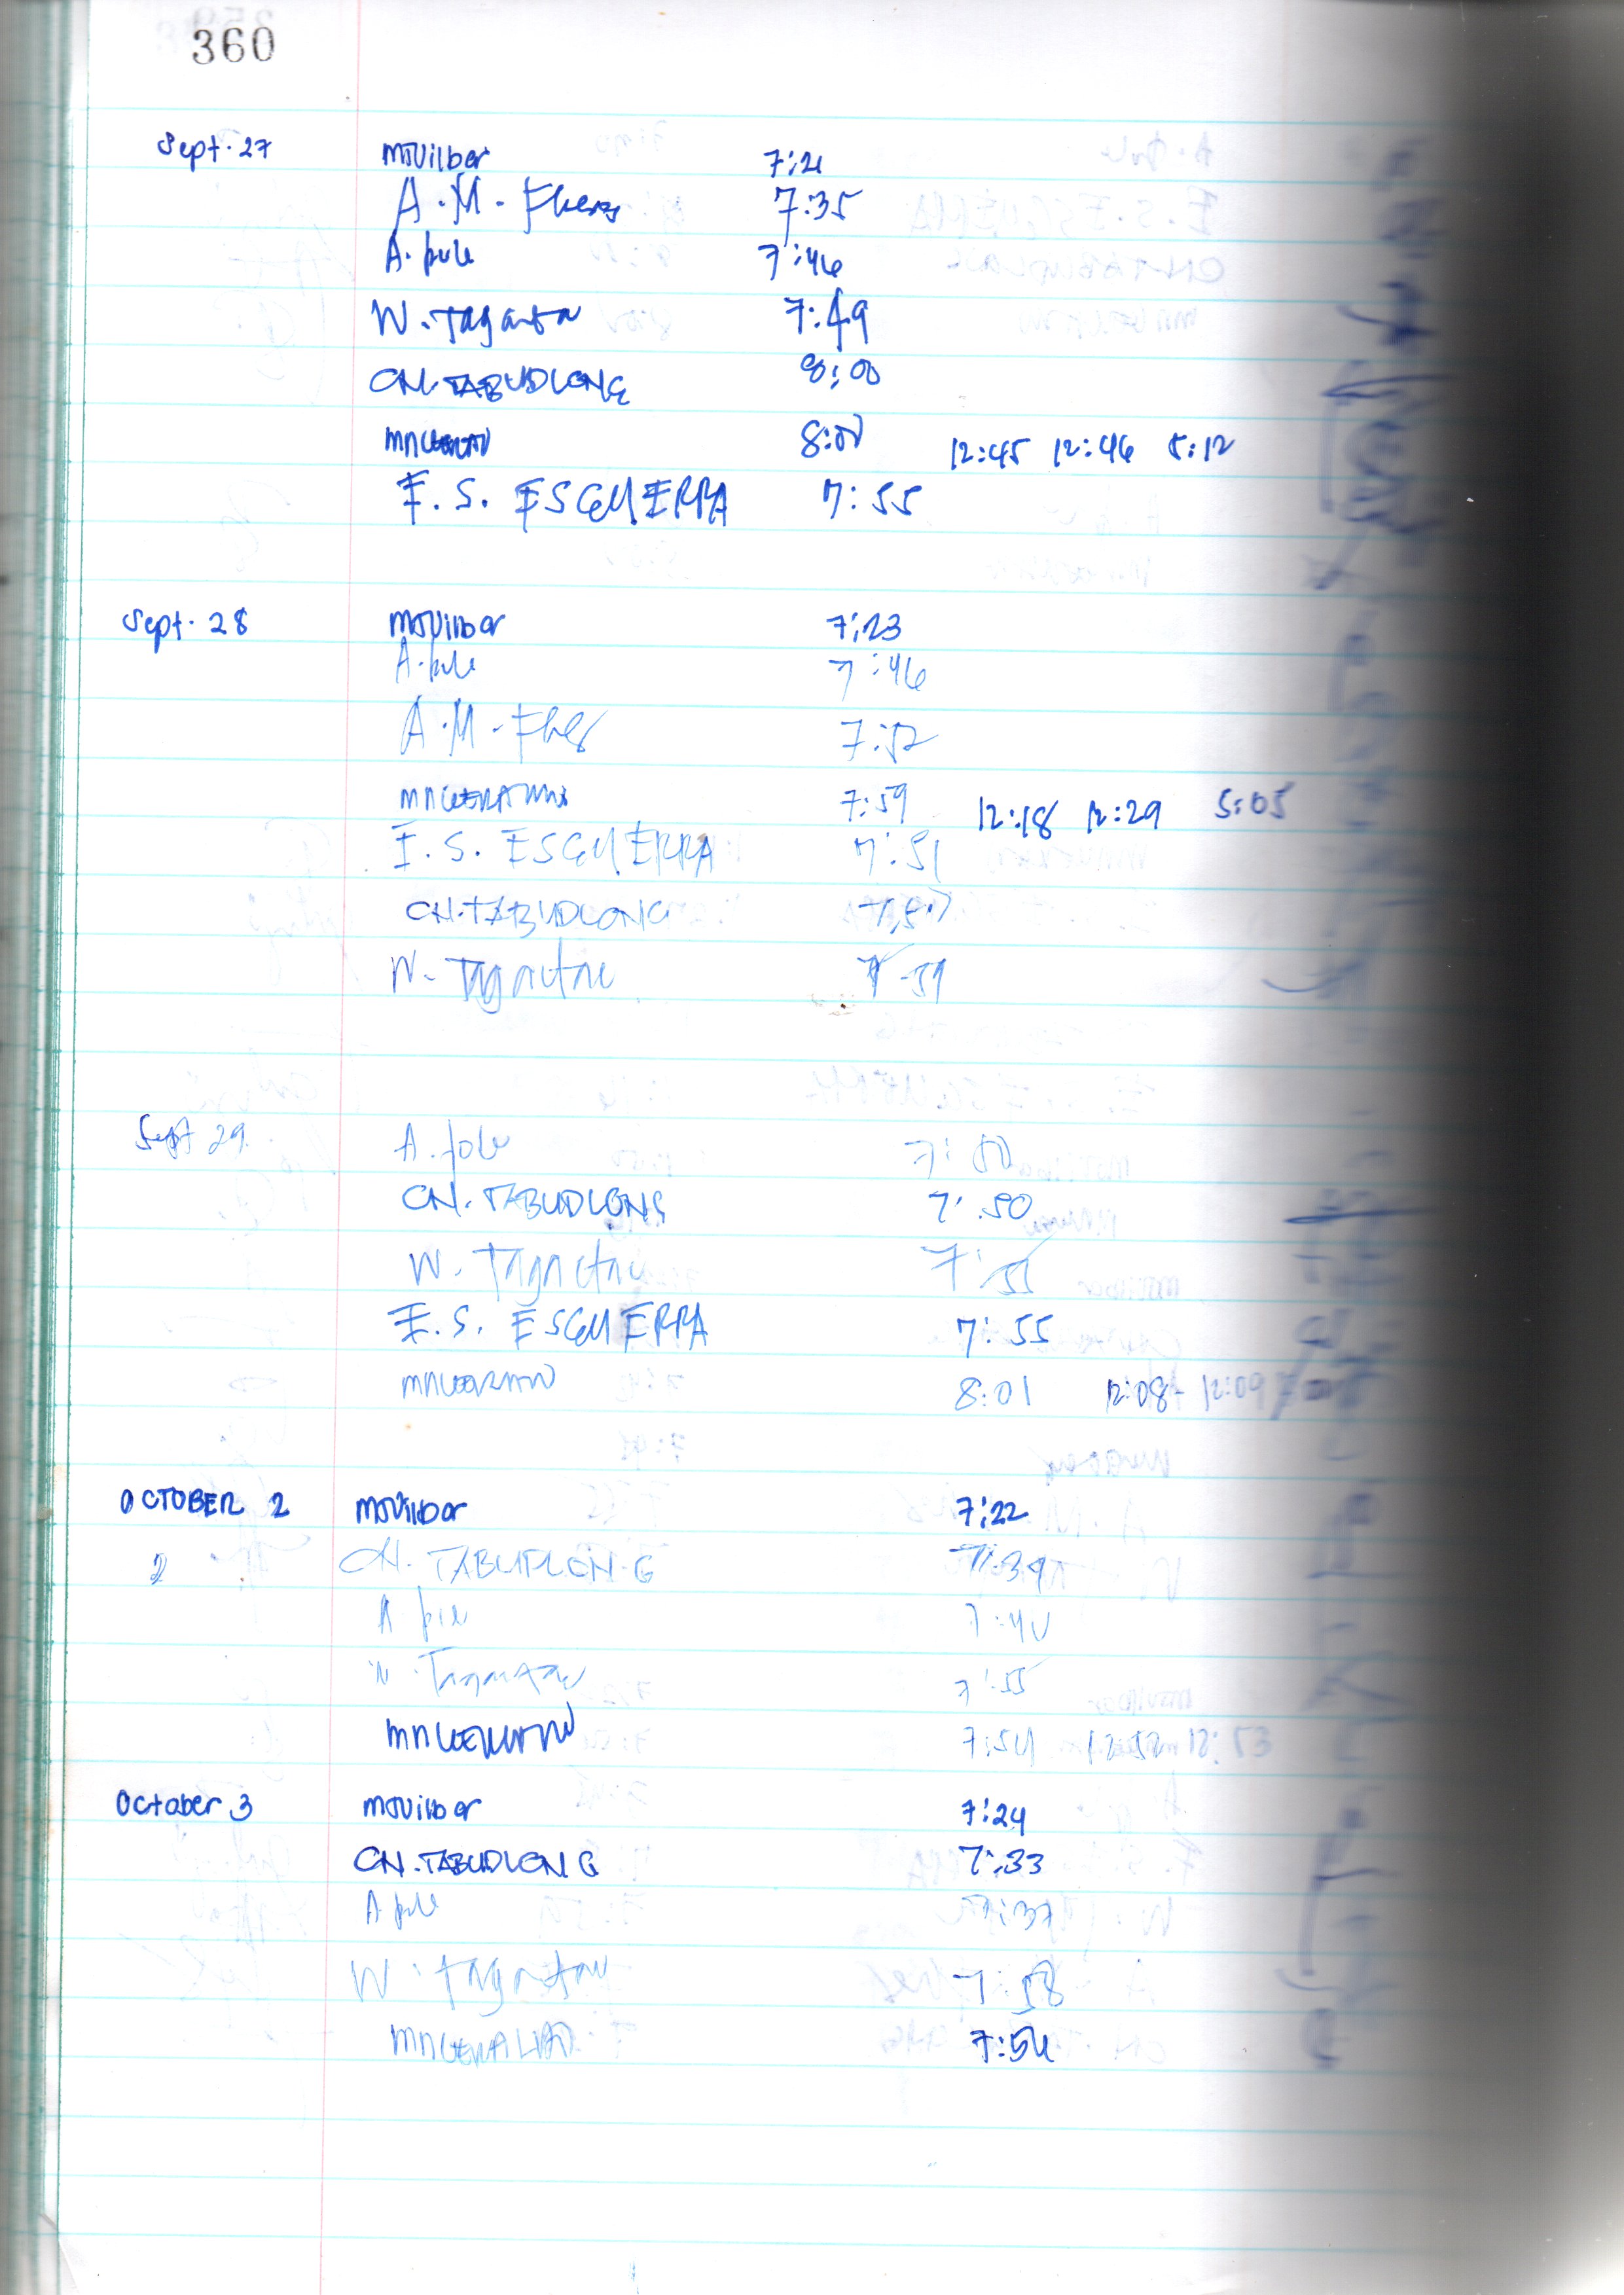 360
Sept. 27 movilbar 7:21
A.M. Flores 7:35
A. pule 7:46
W. Tagactac 7:49
CN. TABUDLONG 8:00
8:00 12:45 12:46 5:12
E. S. ESGUERRA 7:55
Sept. 28 movilbar 7:23
A. pule 7:46
A.M. Flores 7:52
7:59 12:18 12:29 5:05
E. S. ESGUERRA 7:51
CN. TABUDLONG 7:57
W. Tagactac 7:59
Sept 29 A. pule 7:50
CN. TABUDLONG 7:50
W. Tagactac 7:55
E. S. ESGUERRA 7:55
8:01 12:08 - 12:09
OCTOBER 2 movilbar 7:22
2 CN. TABUDLONG 7:39
A pule 7:40
W. Tagactac 7:55
7:54
October 3 movilbar 7:24
CN. TABUDLONG 7:33
A pule 7:37
W. Tagactac 7:58
7:54